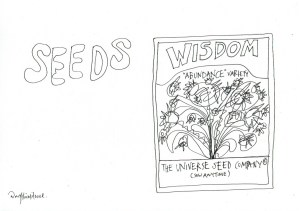 SEEDS
WISDOM
"ABUNDANCE" VARIETY
THE UNIVERSE SEED COMPANY®
(SOW ANYTIME)